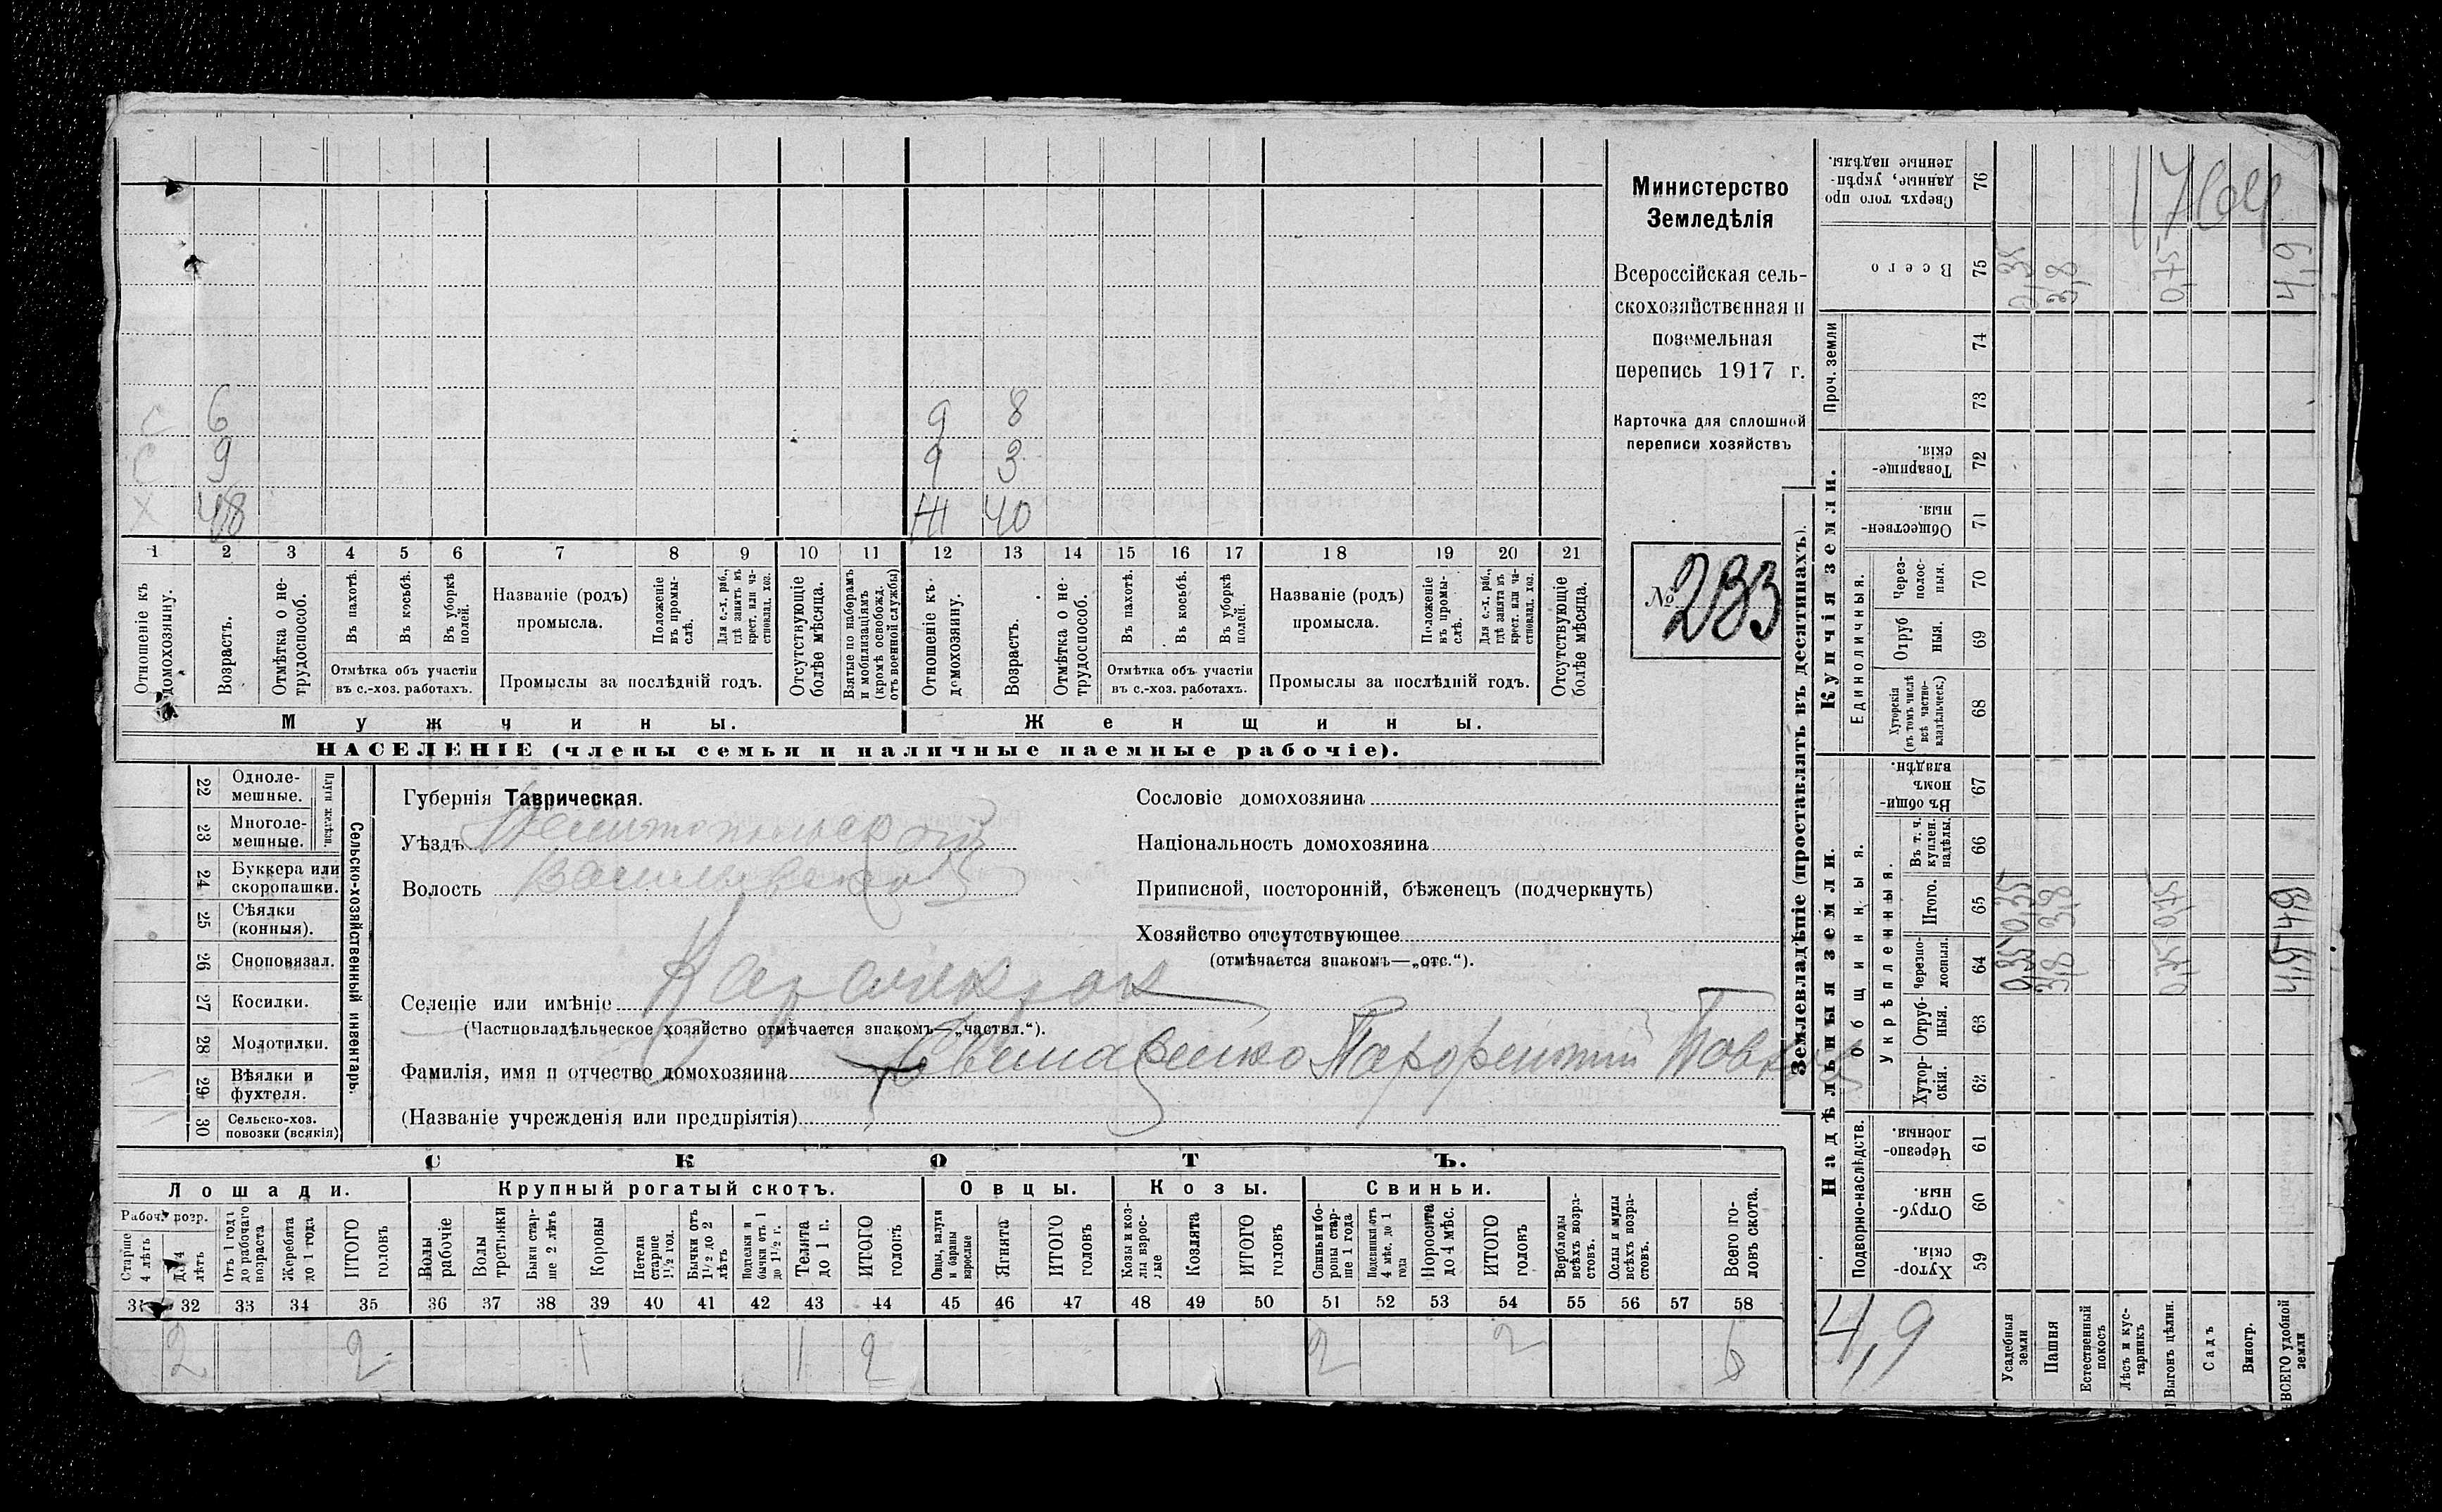 Министерство
Земледѣлія
Всероссійская сель-
скохозяйственная и
поземельная
перепись 1917 г.
Карточка для сплошной
переписи хозяйствъ
№ 233
с 6 9 8
с 9 9 3
х 48 Ж 40
1 2 3 4 5 6 7 8 9 10 11 12 13 14 15 16 17 18 19 20 21
Отношеніе къ домохозяину.
Возрастъ.
Отмѣтка о не-трудоспособ.
Въ пахотѣ.
Въ косьбѣ.
Въ уборкѣ полей.
Отмѣтка объ участіи
въ с.-хоз. работахъ.
Названіе (родъ)
промысла.
Положеніе въ промы-слѣ.
Для с.-х. раб., гдѣ занятъ въ крест. или ча-стновлад. хоз.
Промыслы за послѣдній годъ.
Отсутствующіе болѣе мѣсяца.
Взятые по наборамъ и мобилизаціямъ (кромѣ освобожд. отъ военной службы)
Отношеніе къ домохозяину.
Возрастъ.
Отмѣтка о не-трудоспособ.
Въ пахотѣ.
Въ косьбѣ.
Въ уборкѣ полей.
Отмѣтка объ участіи
въ с.-хоз. работахъ.
Названіе (родъ)
промысла.
Положеніе въ промы-слѣ.
Для с.-х. раб., гдѣ занята въ крест. или ча-стновлад. хоз.
Промыслы за послѣдній годъ.
Отсутствующіе болѣе мѣсяца.
Мужчины.
Женщины.
НАСЕЛЕНІЕ (члены семьи и наличные наемные рабочіе).
Сельско-хозяйственный инвентарь.
Плуги желѣзн.
22 Одноле-мешные.
23 Многоле-мешные.
24 Буккера или скоропашки.
25 Сѣялки (конныя).
26 Сноповязал.
27 Косилки.
28 Молотилки.
29 Вѣялки и фухтеля.
30 Сельско-хоз. повозки (всякія)
Губернія Таврическая.
Уѣздъ Мелитопольский
Волость Васильевская
Селеніе или имѣніе Карачекрак
(Частновладѣльческое хозяйство отмѣчается знакомъ—„частвл.“).
Фамилія, имя и отчество домохозяина Парфентий
(Названіе учрежденія или предпріятія)
Сословіе домохозяина
Національность домохозяина
Приписной, посторонній, бѣженецъ (подчеркнуть)
Хозяйство отсутствующее
(отмѣчается знакомъ—„отс.“).
СКОТЪ.
Лошади. Крупный рогатый скотъ. Овцы. Козы. Свиньи.
Рабоч. возр.
Старше 4 лѣтъ
до 4 лѣтъ
Отъ 1 года до рабочаго возраста
Жеребята до 1 года
ИТОГО головъ
Волы рабочіе
Волы третьяки
Быки стар-ше 2 лѣтъ
Коровы
Нетели старше 1½ год.
Бычки отъ 1½ до 2 лѣтъ
Подтелки и бычки отъ 1 до 1½ г.
Телята до 1 г.
ИТОГО головъ
Овцы, валухи и бараны взрослые
Ягнята
ИТОГО головъ
Козы и коз-лы взрос-лые
Козлята
ИТОГО головъ
Свиньи и бо-ровы стар-ше 1 года
Подсвинки отъ 4 мѣс. до 1 года
Поросята до 4 мѣс.
ИТОГО головъ
Верблюды всѣхъ возра-стовъ.
Ослы и мулы всѣхъ возра-стовъ.
Всего го-ловъ скота.
31 32 33 34 35 36 37 38 39 40 41 42 43 44 45 46 47 48 49 50 51 52 53 54 55 56 57 58
2 2 1 1 2 2 2 6
Землевладѣніе (проставлять въ десятинахъ).
Надѣльныя земли.
Купчія земли.
Проч. земли
Подворно-наслѣдств.
Общинныя.
Укрѣпленныя.
Единоличныя.
Хутор-скія. 59
Отруб-ныя. 60
Черезпо-лосныя. 61
Хутор-скія. 62
Отруб-ныя. 63
Черезпо-лосныя. 64
Итого. 65
Въ т. ч. куплен. надѣлы. 66
Въ общи-номъ владѣн. 67
Хуторскія (въ томъ числѣ всѣ частно-владѣльческ.) 68
Отруб ныя. 69
Через-полос-ныя. 70
Обществен-ныя. 71
Товарище-скія. 72
73
74
Всего 75
Сверхъ того про данные, укрѣп-ленные надѣлы. 76
4,9
Усадебныя земли 0,35 0,35 0,35
Пашня 3,8 3,8 3,8
Естественный покосъ
Лѣсъ и кус-тарникъ
Выгонъ цѣлин. 0,75 0,75 0,75
Садъ
Виногр.
ВСЕГО удобной земли 4,9 4,9